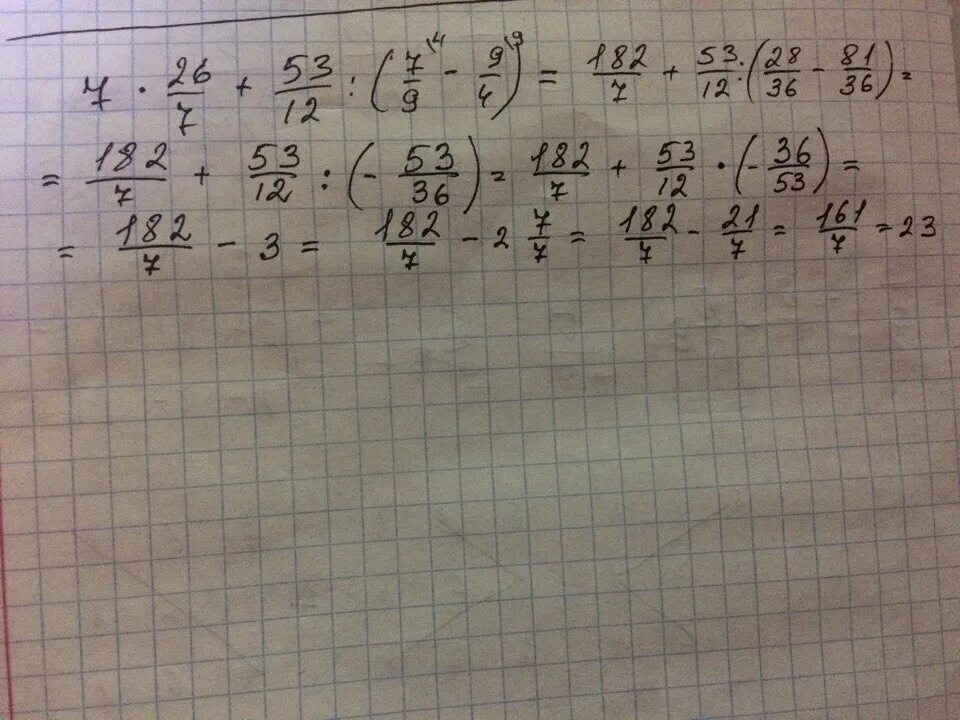 7 · 26/7 + 53/12 : (7/9 \4 − 9/4 \9) = 182/7 + 53/12 : (28/36 − 81/36) =
= 182/7 + 53/12 : (− 53/36) = 182/7 + 53/12 · (− 36/53) =
= 182/7 − 3 = 182/7 − 2 7/7 = 182/7 − 21/7 = 161/7 = 23